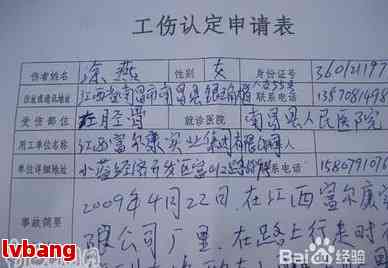 工伤认定申请表
伤者姓名 涂燕 性别 女 身份证号 360121197
住址或通讯地址 江西省南昌市南昌县 联系电话 1357081498
受伤部位 左胫骨 就诊医院 南昌县人民医院
用工单位名称 江西富尔康实业集团有限公司
单位详细地址 小蓝经济开发区富山 路 联系电话 1580791016
2009年4月22日,在江西富尔康实
事故简要 限公司厂里,在路上行走时
lvbang
Baidu 百度经验